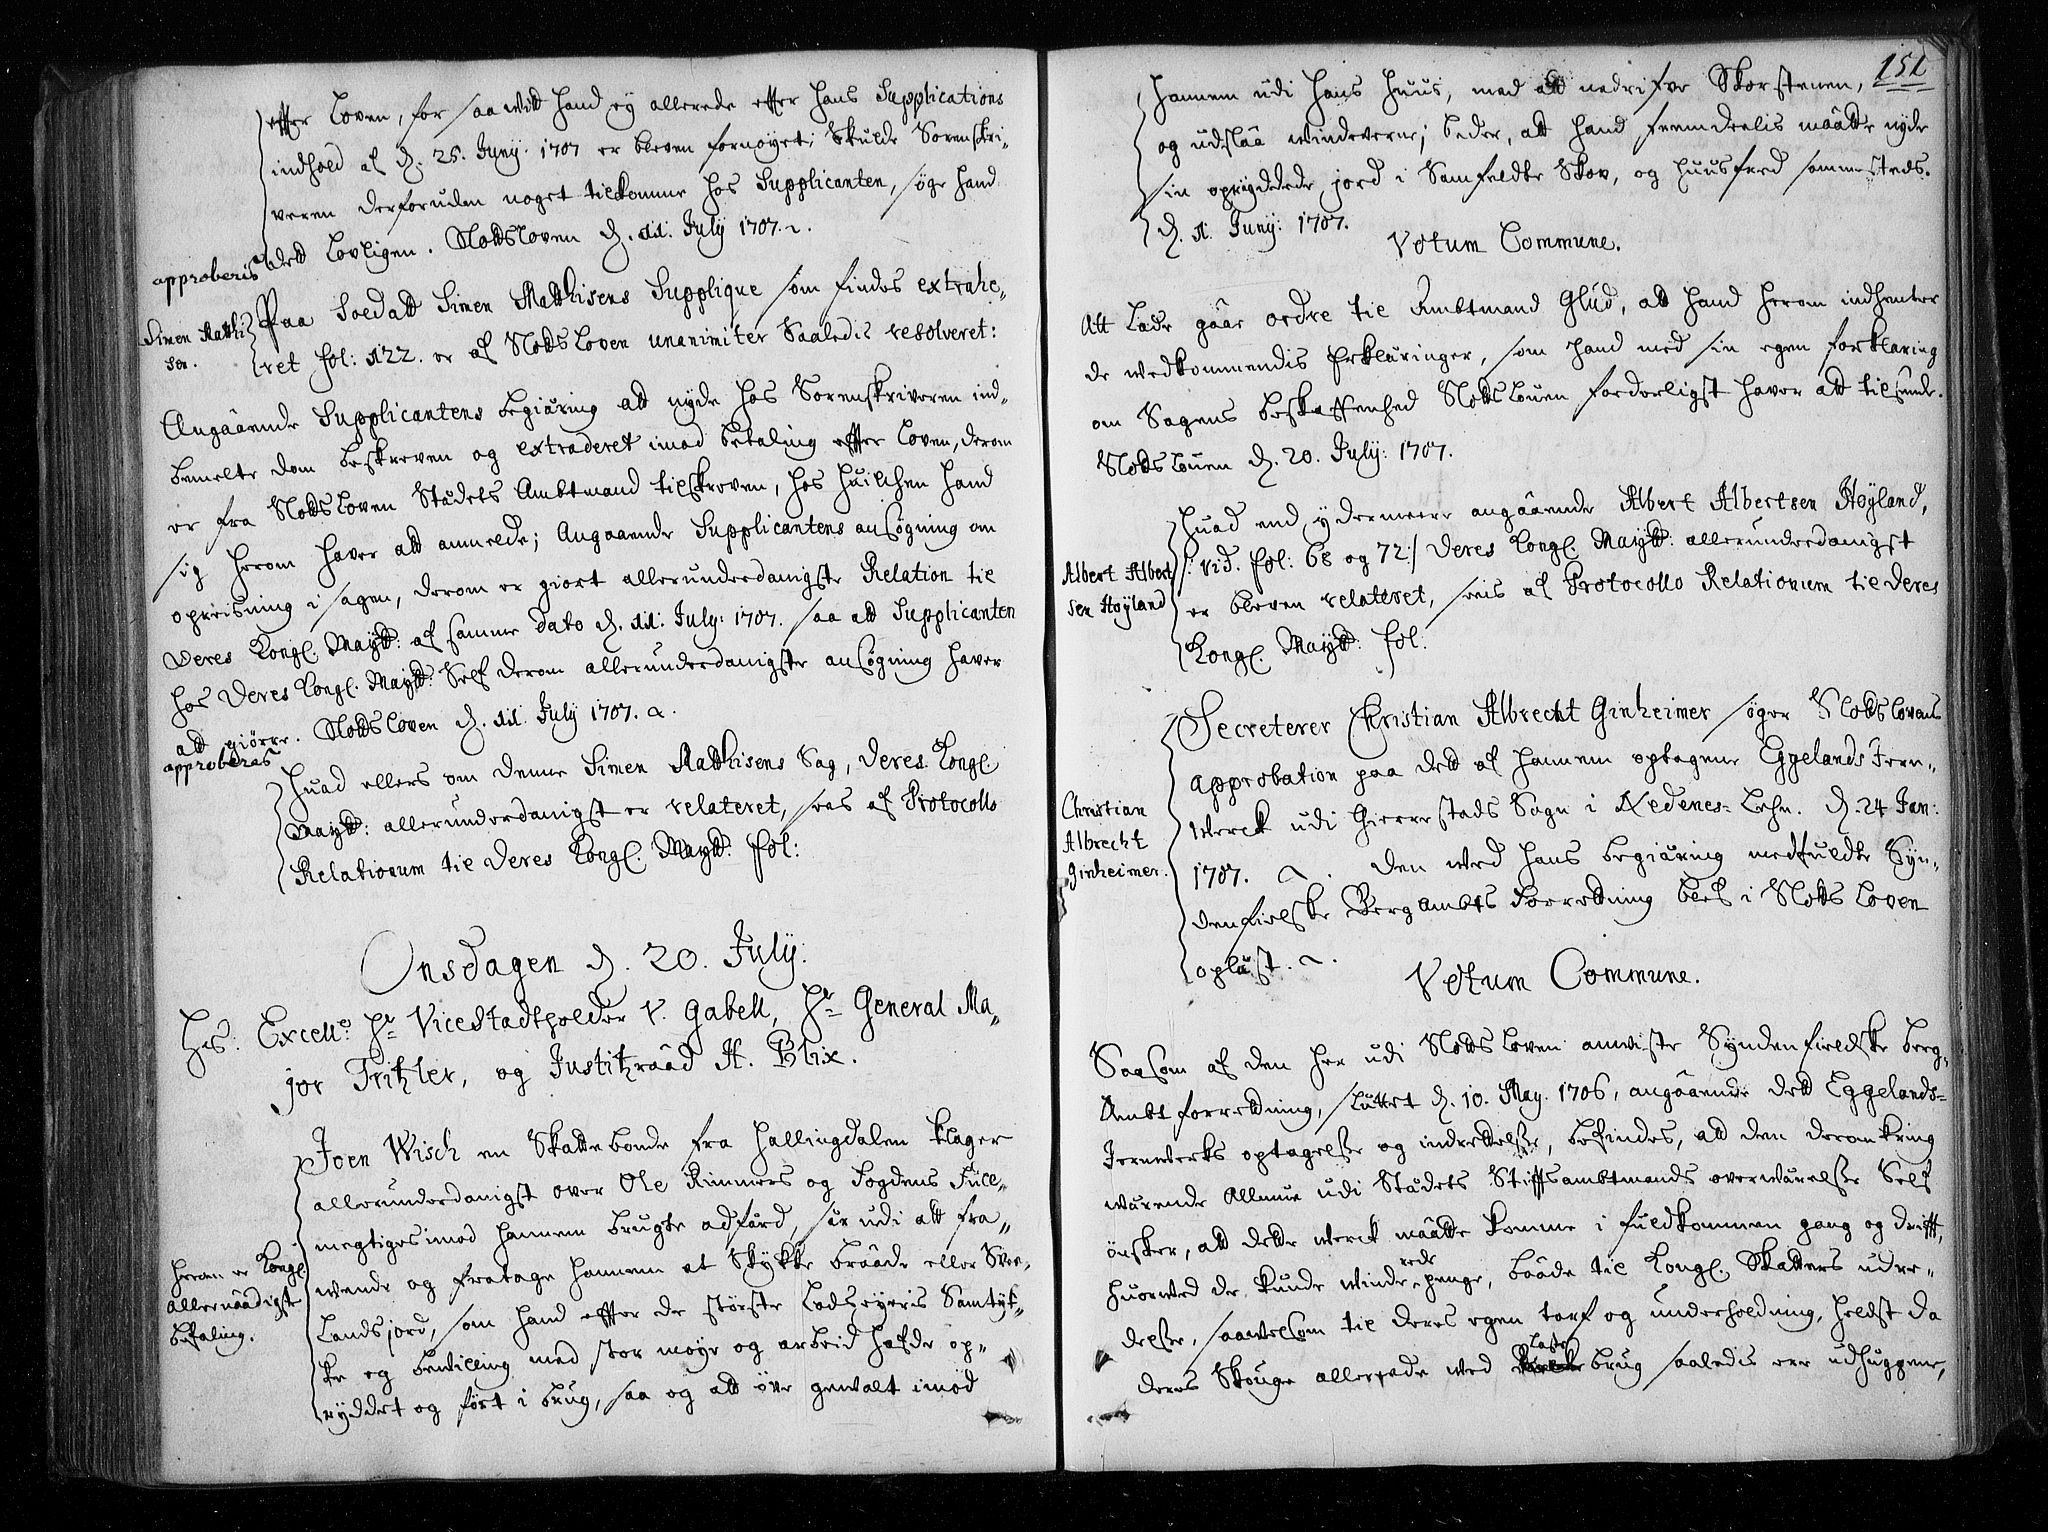 efter Loven, for saa witt hand ej allerede efter hans Supplications
indhold af d. 25. Juny: 1707 er bleven fornøyet; Skulde Sorenskri-
veren derforuden noget tilkomme hos Supplicanten, søge hand
dett Lovligen. Slottsloven d. 11. July 1707.
approberis
Simen Matthi
sen.
Paa Soldatt Simen Matthisens Supplique som findes extrahe-
ret fol: 122. er af Slotts Loven unanimiter Saaledis resolveret:
Angaaende Supplicantens begiæring att nyde hos Sorenskriveren ind-
bemelte dom beskreven og extraderet imod betaling efter Loven, derom
er fra Slotts Loven Stædets Ambtmand tilskreven, hos huilchen hand
sig herom haver att anmelde; Angaaende Supplicantens ansøgning om
opreisning i sagen, derom er giort allerunderdanigste Relation til
Deres Kongl. Maytt: af samme dato d. 11. July: 1707. saa att Supplicanten
hos Deres Kongl. Maytt: Self derom allerunderdanigste ansøgning haver
att giørre. Slottsloven d. 11. July 1707.
approberes
Huad ellers om denne Simen Matthisens Sag, Deres Kongl
Maytt: allerunderdanigst er relateret, sees af Protocollo
Relationum til Deres Kongl. Maytt: fol:
Onsdagen d. 20. July:
Hs: Excell: Hr Vicestadtholder v. Gabell, Hr General Ma-
jor Tritzler, og Justitzraad H. Blix.
Herom er Kongl
allernaadigste
befaling.
Joen Wisch en Skattebonde fra Hallingdalen klager
allerunderdanigst over Ole Rimmers og Fogdens Fuld-
megtiges imod hannem brugte adfærd, sær udi att fra-
wende og fratage hannem et Stykke Braade eller Svee-
Landsjord, som hand efter de største Lodseyeris Samtyk-
ke og bewilling med stor møye og arbeid hafde op-
ryddet og ført i brug, saa og att øve gewalt imod
151
hannem udi hans Huus, med att nedrifve Skorstenen,
og udslaa windeverne; beder, att hand fremdeelis maatte nyde
sin opryddede jord i Samfeldte Skov, og huusfred sammesteds.
d. 1. Juny: 1707.
Votum Commune.
Att Lade gaar ordre til Ambtmand Glud, att hand herom indhenter
de wedkommendis Erklæringer, som hand med sin egen forklaring
om Sagens beskaffenhed Slotts Louen forderligst haver att tilsende.
Slotts Louen d. 20. July: 1707.
Albert Albert
sen Høyland
Huad end ydermeere angaaende Albert Albertsen Høyland,
/: vid. fol: 68 og 72:/ Deres Kongl. Maytt: allerunderdanigst
er bleven relateret, seis af Protocollo Relationum til Deres
Kongl. Maytt: fol:
Christian
Albrecht
Ginheimer.
Secreterer Christian Albrecht Ginheimer søger Slottslovens
approbation paa dett af hannem optagene Eggelands Jern-
Werck udi Gierrestads Sogn i Nedenes-Lehn. d. 24 Jan:
1707. Den wed hans begiæring medfuldte Syn-
denfielske Bergambts Forretning blef i Slotts Loven
oplæst.
Votum Commune.
Saasom af den her udi Slotts Loven anviste Syndenfieldske Berg-
Ambt forretning, sluttet d. 10. May. 1706, angaaende dett Eggelands-
Jernwerks optagelse og indrettelse, befindes, att den deromkring
wærende Allmue udi Stædets Stiftsambtmands overwærelse Self
ønsker, att dette werck maatte komme i fuldkommen gang og drift,
huorwed de kunde winde rede penge, baade til Kongl. Skatters udre-
delse, saawelsom til deres egen tarf og underholdning, helst da
deres Skouge allerede wed Laste brug saaledis ere udhuggene,